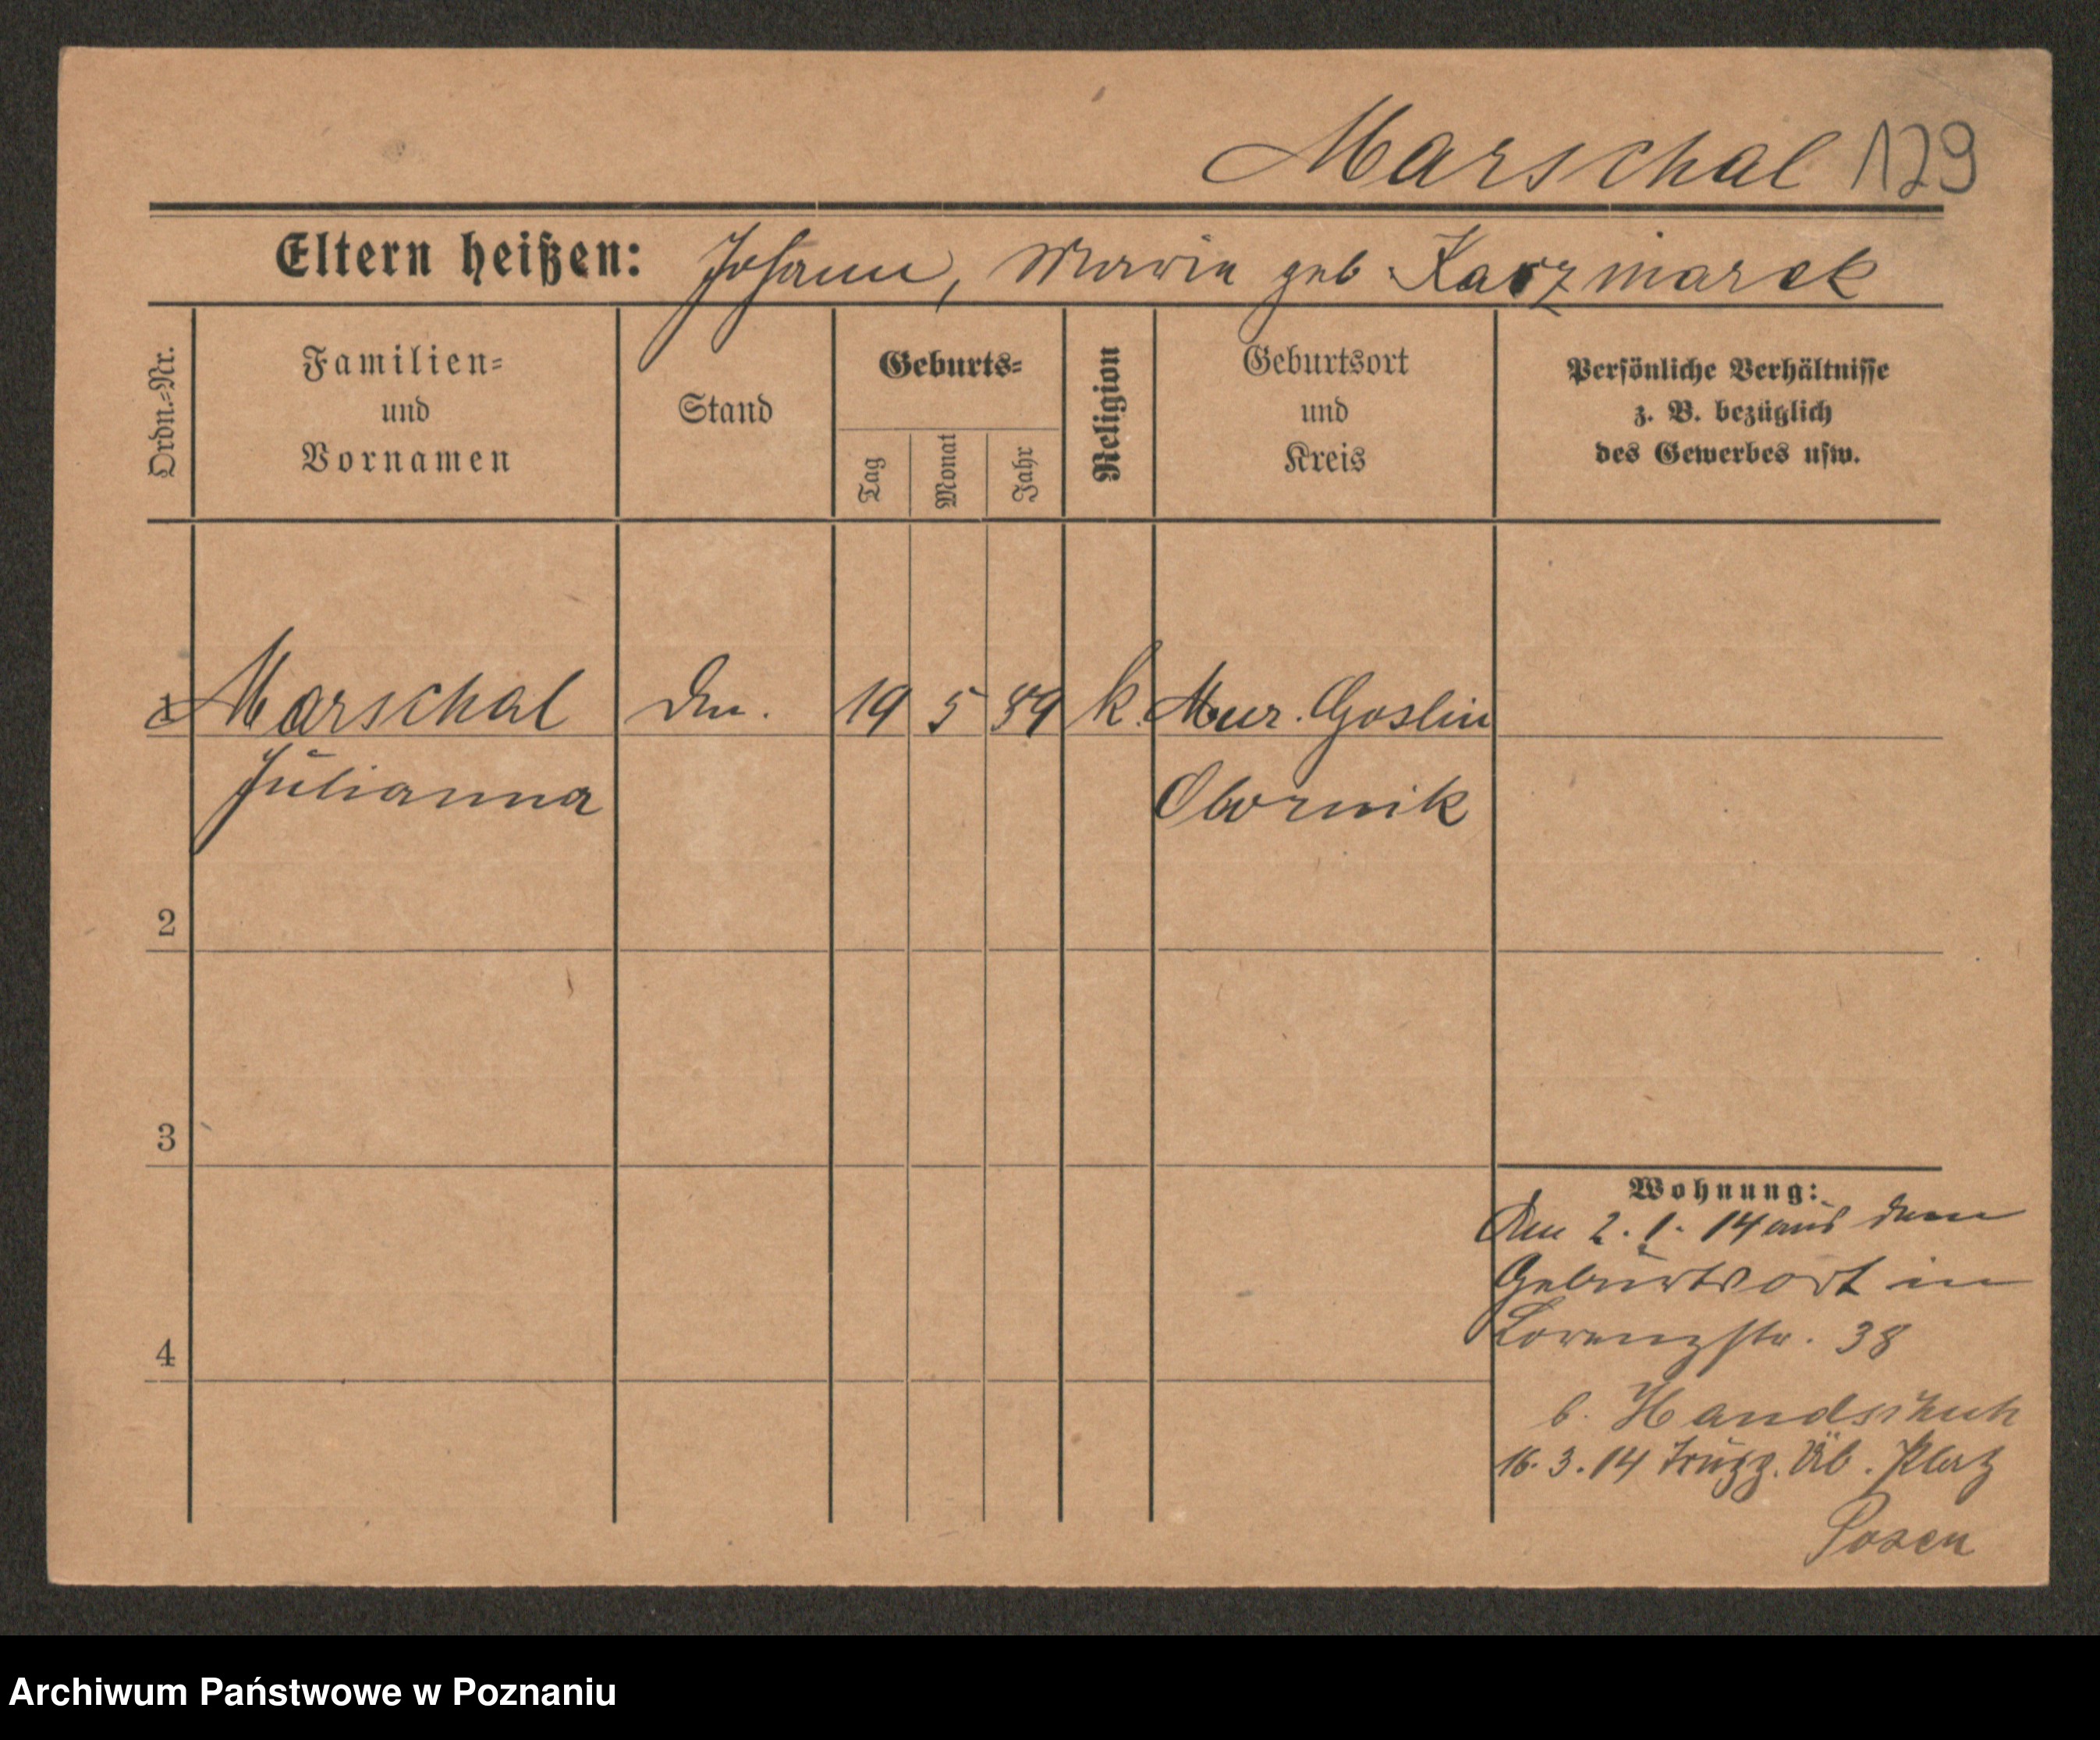 Marschal 129
Eltern heißen: Johann, Maria geb Kaczmarek
Ordn.-Nr.
Familien-
und
Vornamen
Stand
Geburts-
Tag
Monat
Jahr
Religion
Geburtsort
und
Kreis
Persönliche Verhältnisse
z. B. bezüglich
des Gewerbes usw.
1 Marschal 19 5 89 k. Mur. Goslin
Julianna Obornik
2
3
4
Wohnung:
Den 2. 1. 14 aus dem
Geburtsort in
Lorenzstr. 38
b. Handschuh
16. 3. 14 Trupp. Üb. Platz
Posen
Archiwum Państwowe w Poznaniu